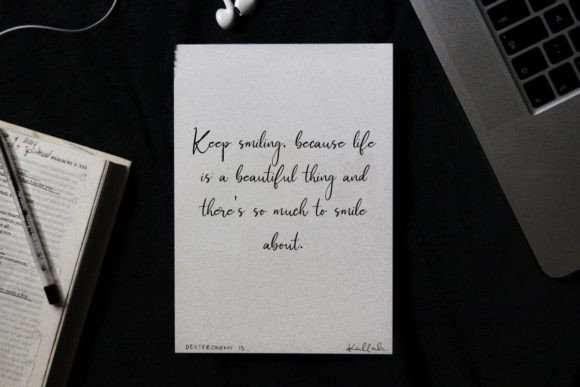 Keep smiling, because life
is a beautiful thing and
there's so much to smile
about.
DEUTERONOMY 15